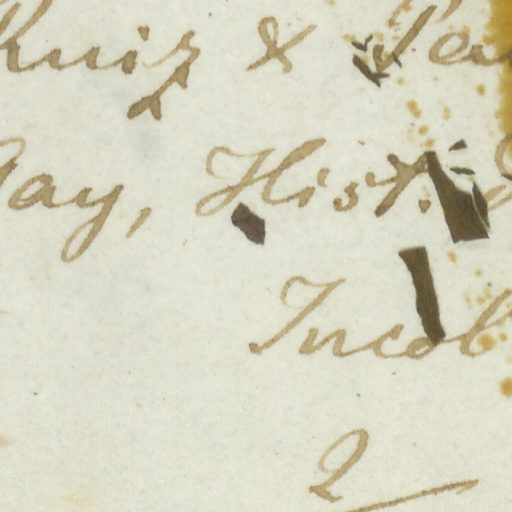 Ruiz & Pa
Gay, Hist.
Incol
2